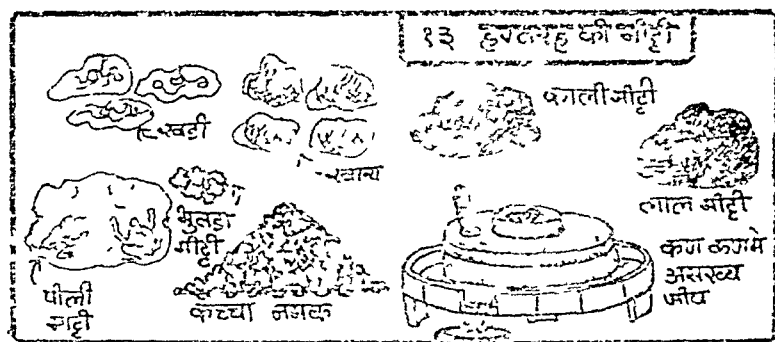 १३ हरतरह की मीट्टी
खडी
खार्य
काली मीट्टी
लाल मीट्टी
मीट्टी
पीली
मीट्टी
कच्चा नमक
कण कणमे
असख्य
जीव